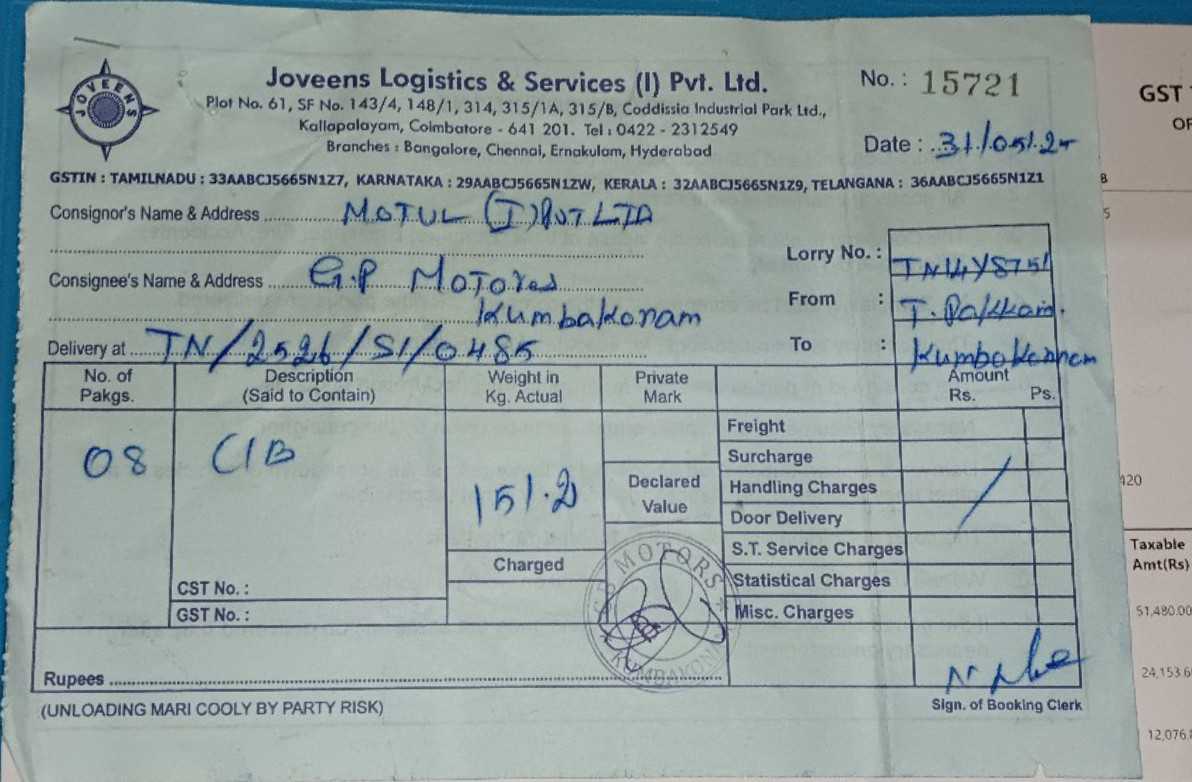 JOVEENS
Joveens Logistics & Services (I) Pvt. Ltd.
No. : 15721
Plot No. 61, SF No. 143/4, 148/1, 314, 315/1A, 315/B, Coddissia Industrial Park Ltd.,
Kallapalayam, Coimbatore - 641 201. Tel : 0422 - 2312549
Branches : Bangalore, Chennai, Ernakulam, Hyderabad
Date : 31/05/25
GSTIN : TAMILNADU : 33AABCJ5665N1Z7, KARNATAKA : 29AABCJ5665N1ZW, KERALA : 32AABCJ5665N1Z9, TELANGANA : 36AABCJ5665N1Z1
Consignor's Name & Address MOTUL (I) PVT LTD
Lorry No. : TN14Y8751
Consignee's Name & Address G.P MOTORS
Kumbakonam
From : T. Pakkam.
Delivery at TN/2526/SI/0485
To : Kumbakonam
No. of Pakgs. Description (Said to Contain) Weight in Kg. Actual Private Mark Amount Rs. Ps.
08 C/B 151.2
Freight
Surcharge
Declared Value
Handling Charges
Door Delivery
S.T. Service Charges
Charged
Statistical Charges
CST No. :
GST No. :
Misc. Charges
G.P. MOTORS
KUMBAKONAM
Rupees
(UNLOADING MARI COOLY BY PARTY RISK)
Sign. of Booking Clerk
GST
420
Taxable
Amt(Rs)
51,480.00
24,153.6
12,076.8